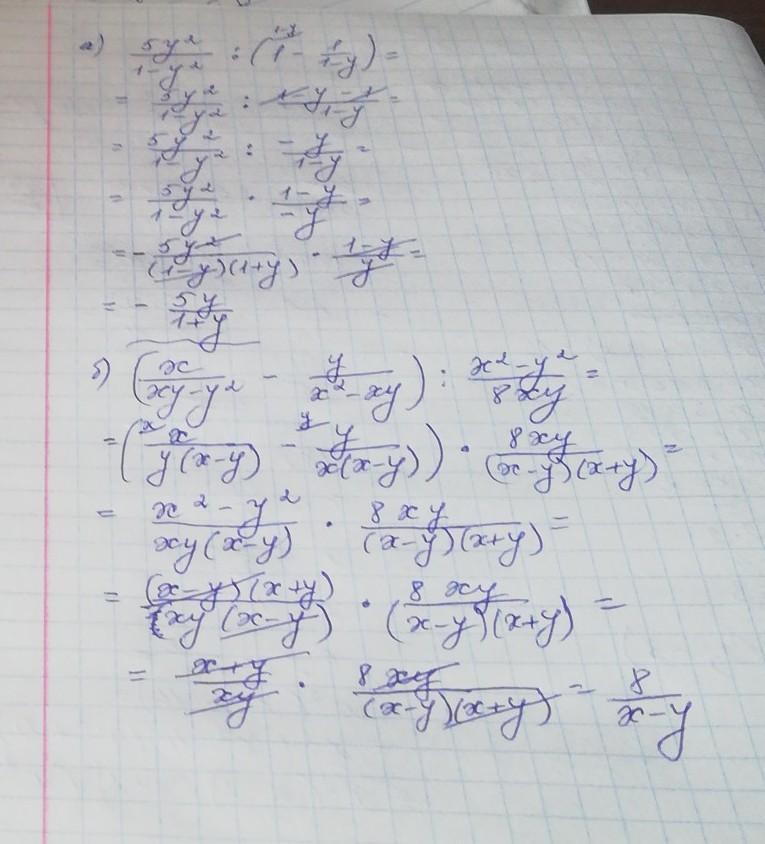 а) \frac{5y^2}{1-y^2} : (^{1-y}1 - \frac{1}{1-y}) =
= \frac{5y^2}{1-y^2} : \frac{1-y-1}{1-y} =
= \frac{5y^2}{1-y^2} : \frac{-y}{1-y} =
= \frac{5y^2}{1-y^2} · \frac{1-y}{-y} =
= - \frac{5y^2}{(1-y)(1+y)} · \frac{1-y}{y} =
= - \frac{5y}{1+y}
б) (\frac{x}{xy-y^2} - \frac{y}{x^2-xy}) : \frac{x^2-y^2}{8xy} =
= (^{x}\frac{x}{y(x-y)} - ^{y}\frac{y}{x(x-y)}) · \frac{8xy}{(x-y)(x+y)} =
= \frac{x^2-y^2}{xy(x-y)} · \frac{8xy}{(x-y)(x+y)} =
= \frac{(x-y)(x+y)}{xy(x-y)} · \frac{8xy}{(x-y)(x+y)} =
= \frac{x+y}{xy} · \frac{8xy}{(x-y)(x+y)} = \frac{8}{x-y}